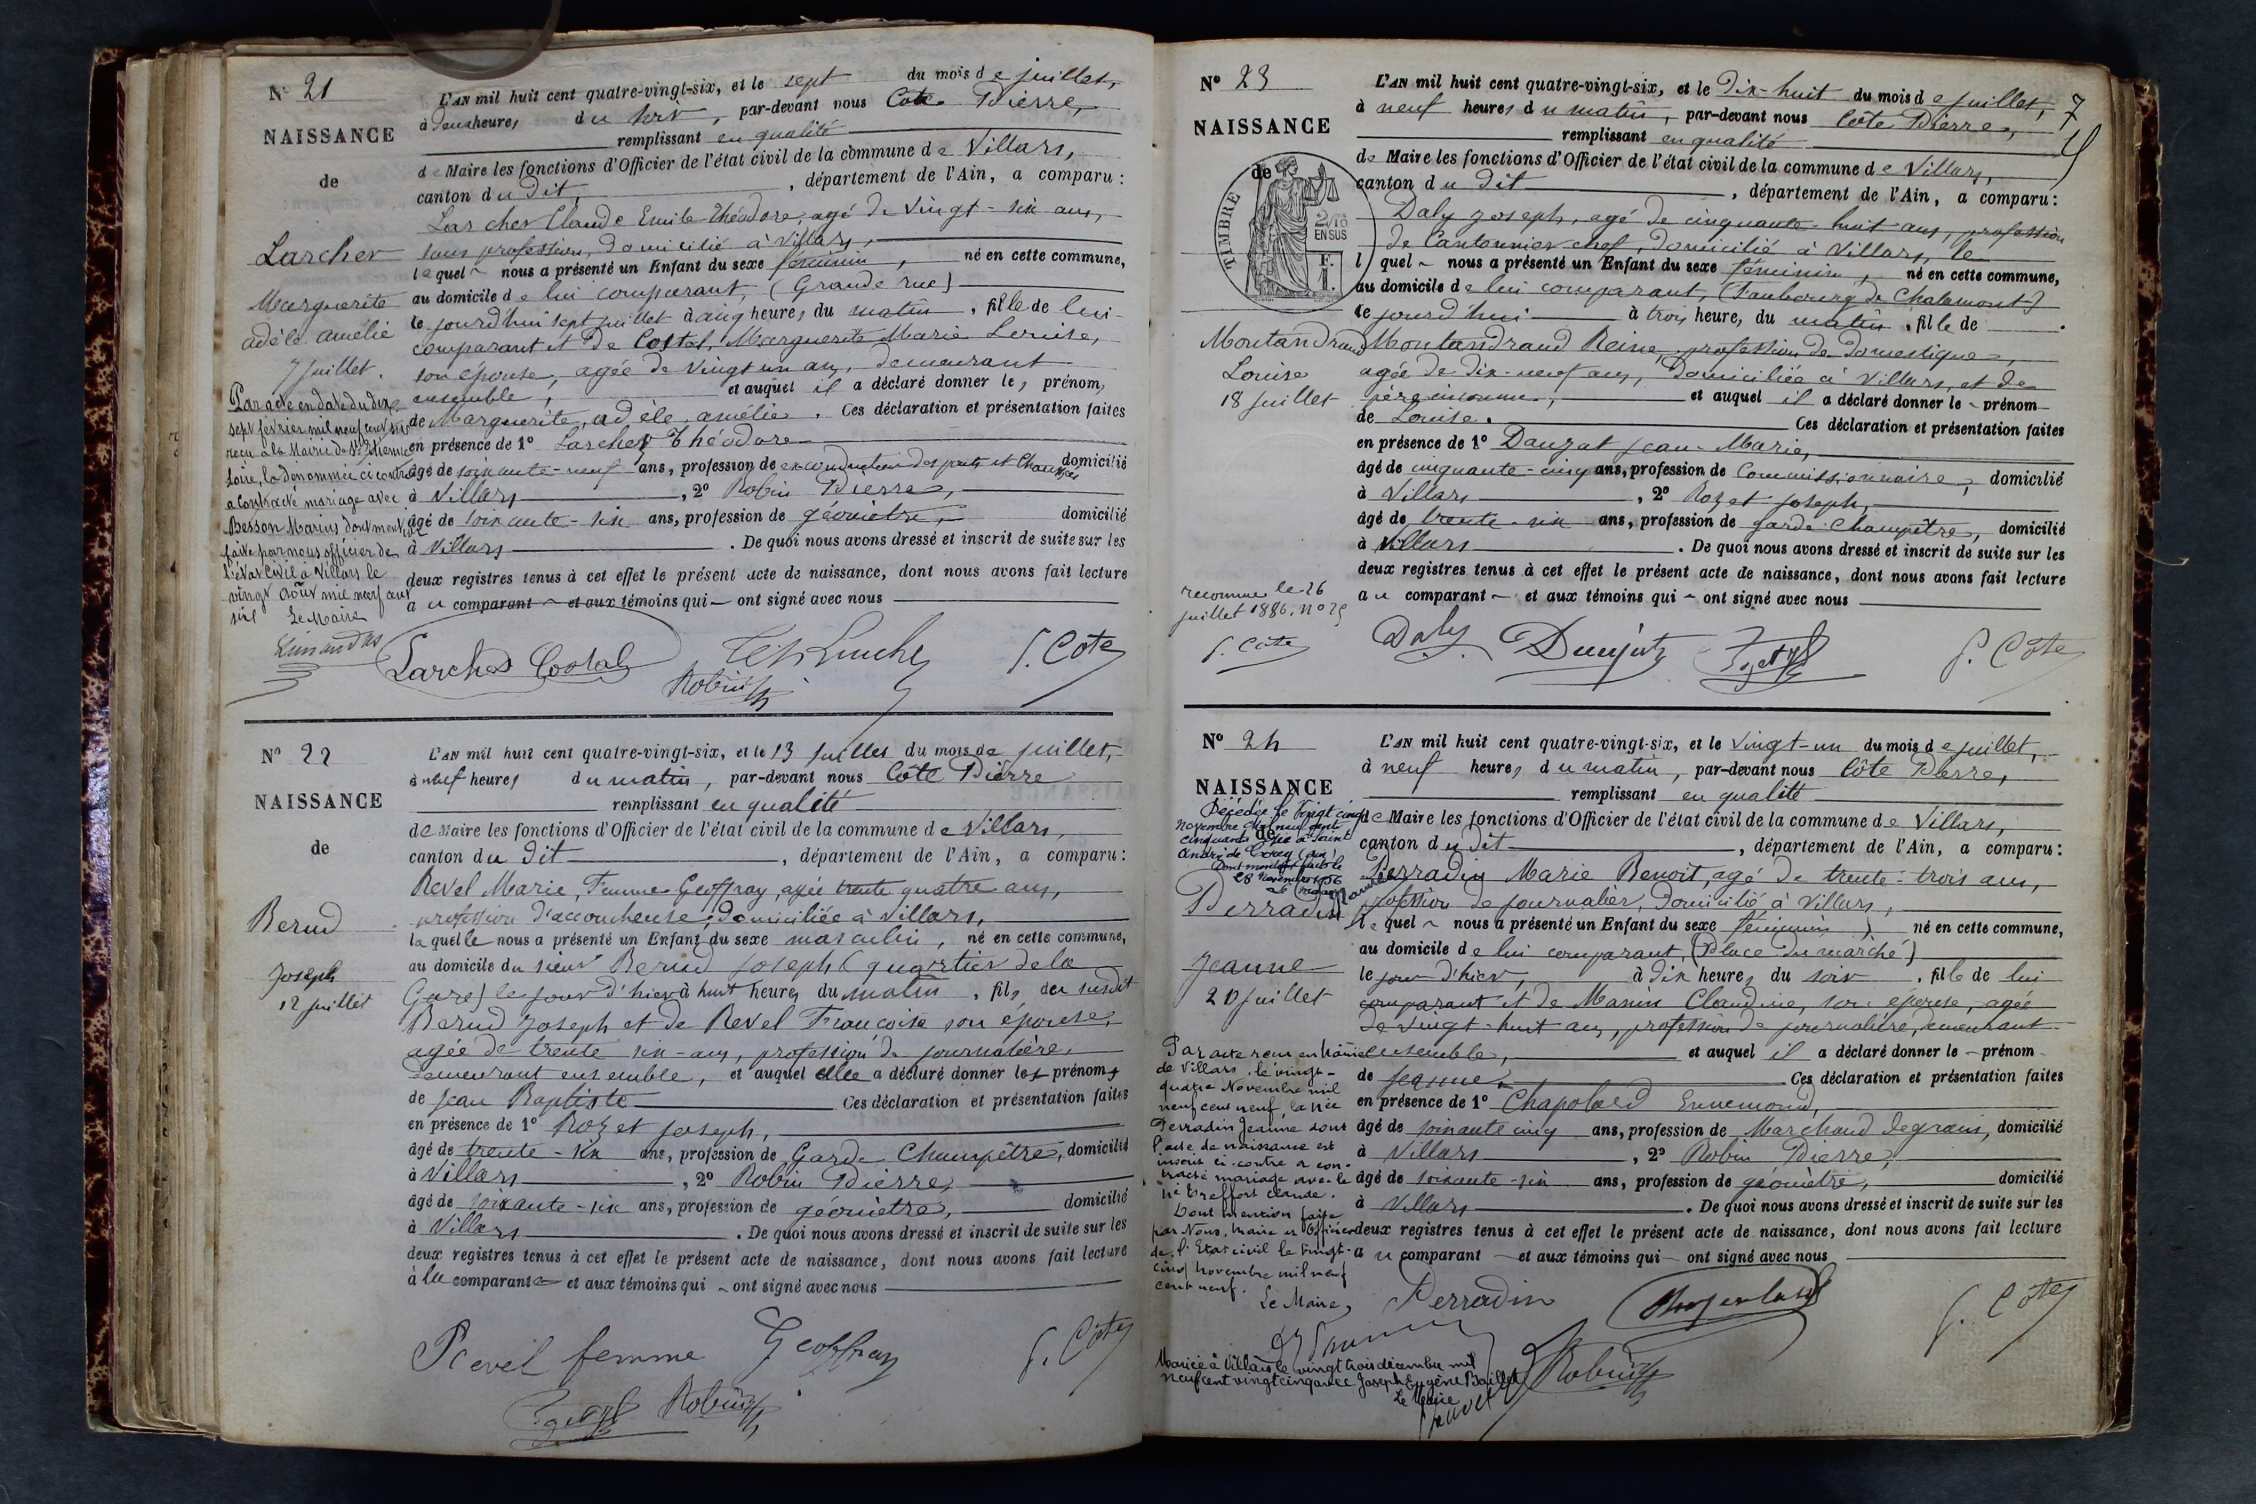 N° 21
NAISSANCE
de
Larcher
Marguerite
adèle amélie
7 juillet.
Par acte en date du dix
sept février mil neuf cent six
reçu à la Mairie de St Etienne
Loire, la dénommée ci contre
a contracté mariage avec
Besson Marius dont mention
faite par nous officier de
l'état Civil à Villars le
vingt août mil neuf cent
six Le Maire
L'AN mil huit cent quatre-vingt-six, et le sept du mois de juillet,
à deux heures du soir, par-devant nous Côte Pierre,
remplissant en qualité
de Maire les fonctions d'Officier de l'état civil de la commune de Villars,
canton du dit, département de l'Ain, a comparu:
Larcher Claude Emile Théodore, agé de vingt-six ans,
sans profession, domicilié à Villars,
lequel nous a présenté un Enfant du sexe féminin, né en cette commune,
au domicile de lui comparant, (Grande rue)
le jourd'hui sept juillet à cinq heures du matin, fille de lui
comparant et de Costal, Marguerite Marie Louise,
son épouse, agée de vingt un ans, demeurant
ensemble, et auquel il a déclaré donner les prénoms
de Marguerite, adèle, amélie. Ces déclaration et présentation faites
en présence de 1° Larcher Théodore
âgé de soixante-neuf ans, profession de ex conducteur des ponts et Chaussées domicilié
à Villars, 2° Robin Pierre,
âgé de soixante-six ans, profession de géomètre, domicilié
à Villars. De quoi nous avons dressé et inscrit de suite sur les
deux registres tenus à cet effet le présent acte de naissance, dont nous avons fait lecture
au comparant et aux témoins qui ont signé avec nous
Larcher Costal
Robin
P. Côte
N° 22
NAISSANCE
de
Berud
Joseph
12 juillet
L'AN mil huit cent quatre-vingt-six, et le 13 juillet du mois de juillet,
à neuf heures du matin, par-devant nous Côte Pierre
remplissant en qualité
de Maire les fonctions d'Officier de l'état civil de la commune de Villars,
canton du dit, département de l'Ain, a comparu:
Revel Marie, Femme Geoffray, agée trente quatre ans,
profession d'accoucheuse, domiciliée à Villars,
laquelle nous a présenté un Enfant du sexe masculin, né en cette commune,
au domicile du sieur Berud Joseph (quartier de la
Gare) le jour d'hier à huit heures du matin, fils du susdit
Berud Joseph et de Revel Francoise son épouse,
agée de trente six-ans, profession de journalière,
demeurant ensemble, et auquel elle a déclaré donner les prénoms
de Jean Baptiste Ces déclaration et présentation faites
en présence de 1° Rozet Joseph,
âgé de trente-six ans, profession de Garde Champêtre, domicilié
à Villars, 2° Robin Pierre,
âgé de soixante-six ans, profession de géomètre, domicilié
à Villars. De quoi nous avons dressé et inscrit de suite sur les
deux registres tenus à cet effet le présent acte de naissance, dont nous avons fait lecture
à la comparante et aux témoins qui ont signé avec nous
Revel femme Geoffray
P. Côte
Rozet Robin
N° 23
NAISSANCE
de
TIMBRE
2/10
EN SUS
Montandraud
Louise
18 juillet
reconnue le 26
juillet 1886. n° 25
P. Côte
L'AN mil huit cent quatre-vingt-six, et le Dix-huit du mois de juillet,
à neuf heures du matin, par-devant nous Côte Pierre,
remplissant en qualité
de Maire les fonctions d'Officier de l'état civil de la commune de Villars,
canton du dit, département de l'Ain, a comparu:
Daly Joseph, agé de cinquante-huit ans, profession
de Cantonnier chef, domicilié à Villars, le
lequel nous a présenté un Enfant du sexe féminin, né en cette commune,
au domicile de lui comparant, (Faubourg de Chalamont)
le jourd'hui à trois heures du matin, fille de
Montandraud Reine, profession de domestique,
agée de dix-neuf ans, domiciliée à Villars, et de
père inconnu, et auquel il a déclaré donner le prénom
de Louise. Ces déclaration et présentation faites
en présence de 1° Dauzat Jean-Marie,
âgé de cinquante-cinq ans, profession de Commissionnaire, domicilié
à Villars, 2° Rozet Joseph,
âgé de trente-six ans, profession de garde-Champêtre, domicilié
à Villars. De quoi nous avons dressé et inscrit de suite sur les
deux registres tenus à cet effet le présent acte de naissance, dont nous avons fait lecture
au comparant et aux témoins qui ont signé avec nous
Daly
Rozet
P. Côte
N° 24
NAISSANCE
de
Décédée le vingt cinq
novembre mil neuf cent
cinquante six à Saint
André de Corcy (Ain)
Dont mention faite le
28 novembre 1956
Perradin
Jeanne
20 juillet
Par acte reçu en mairie
de Villars, le vingt-
quatre Novembre mil
neuf cent neuf, la née
Perradin Jeanne dont
l'acte de naissance est
inscrit ci-contre a con-
tracté mariage avec le
né Treffort Claude.
Dont mention faite
par Nous, Maire et Officier
de l'Etat civil le vingt-
cinq Novembre mil neuf
cent neuf.
Le Maire,
Mariée à Villars le vingt trois décembre mil
neuf cent vingt cinq avec Joseph Eugène Baillet
Le Maire
L'AN mil huit cent quatre-vingt-six, et le vingt-un du mois de juillet,
à neuf heures du matin, par-devant nous Côte Pierre,
remplissant en qualité
de Maire les fonctions d'Officier de l'état civil de la commune de Villars,
canton du dit, département de l'Ain, a comparu:
Perradin Marie Benoit, agé de trente-trois ans,
profession de journalier, domicilié à Villars,
lequel nous a présenté un Enfant du sexe féminin, né en cette commune,
au domicile de lui comparant, (Place du marché)
le jour d'hier, à dix heures du soir, fille de lui
comparant et de Manin Claudine, son épouse, agée
de vingt-huit ans, profession de journalière, demeurant
ensemble, et auquel il a déclaré donner le prénom
de Jeanne. Ces déclaration et présentation faites
en présence de 1° Chapoland Ennemond,
âgé de soixante cinq ans, profession de Marchand de grains, domicilié
à Villars, 2° Robin Pierre,
âgé de soixante-six ans, profession de géomètre, domicilié
à Villars. De quoi nous avons dressé et inscrit de suite sur les
deux registres tenus à cet effet le présent acte de naissance, dont nous avons fait lecture
au comparant et aux témoins qui ont signé avec nous
Perradin
P. Côte
Robin